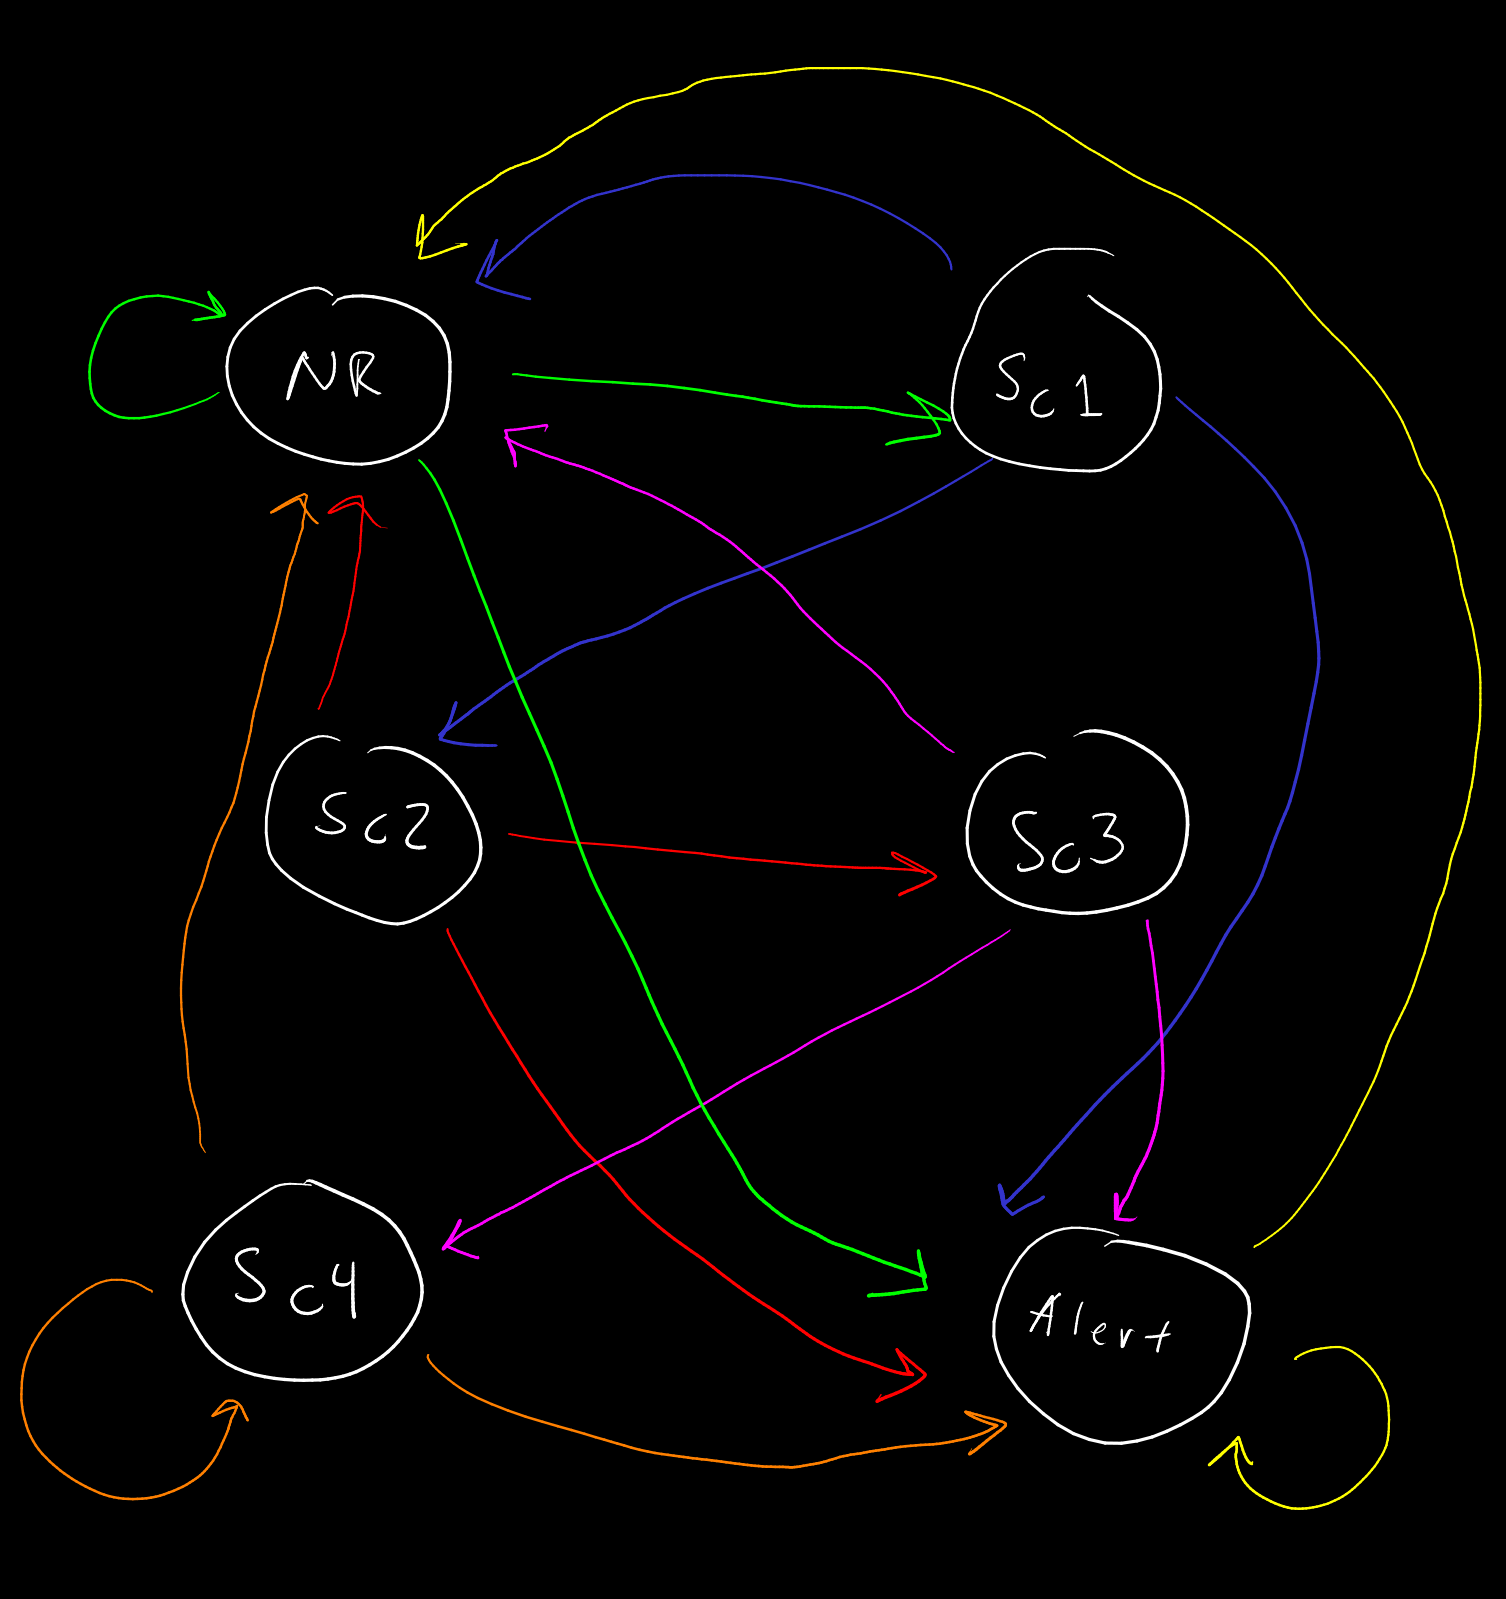 NR
Sc1
Sc2
Sc3
Sc4
Alert